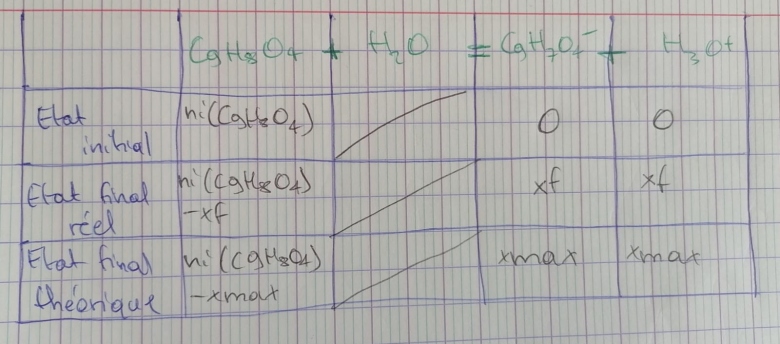 C9H8O4 + H2O = C9H7O4- + H3O+
Etat initial ni(C9H8O4) 0 0
Etat final réel ni(C9H8O4) -xf xf xf
Etat final théorique ni(C9H8O4) -xmax xmax xmax